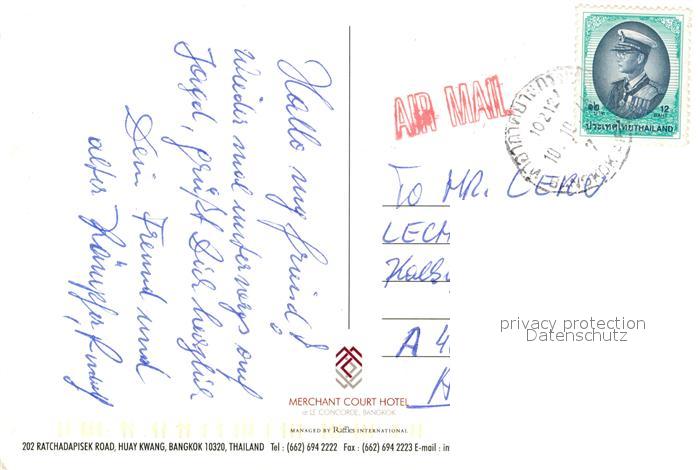 Hallo my friend!
wieder mal unterwegs auf
Jagd, grüßt Dich herzlich
Dein Freund und
alter Kämpfer, Rudolf
AIR MAIL
๑๒ 12
บาท BAHT
ประเทศไทย THAILAND
10212
BANGKOK
To MR.
LECH
A 4
privacy protection
Datenschutz
MERCHANT COURT HOTEL
at LE CONCORDE, BANGKOK
MANAGED BY Raffles INTERNATIONAL
202 RATCHADAPISEK ROAD, HUAY KWANG, BANGKOK 10320, THAILAND Tel : (662) 694 2222 Fax : (662) 694 2223 E-mail : in